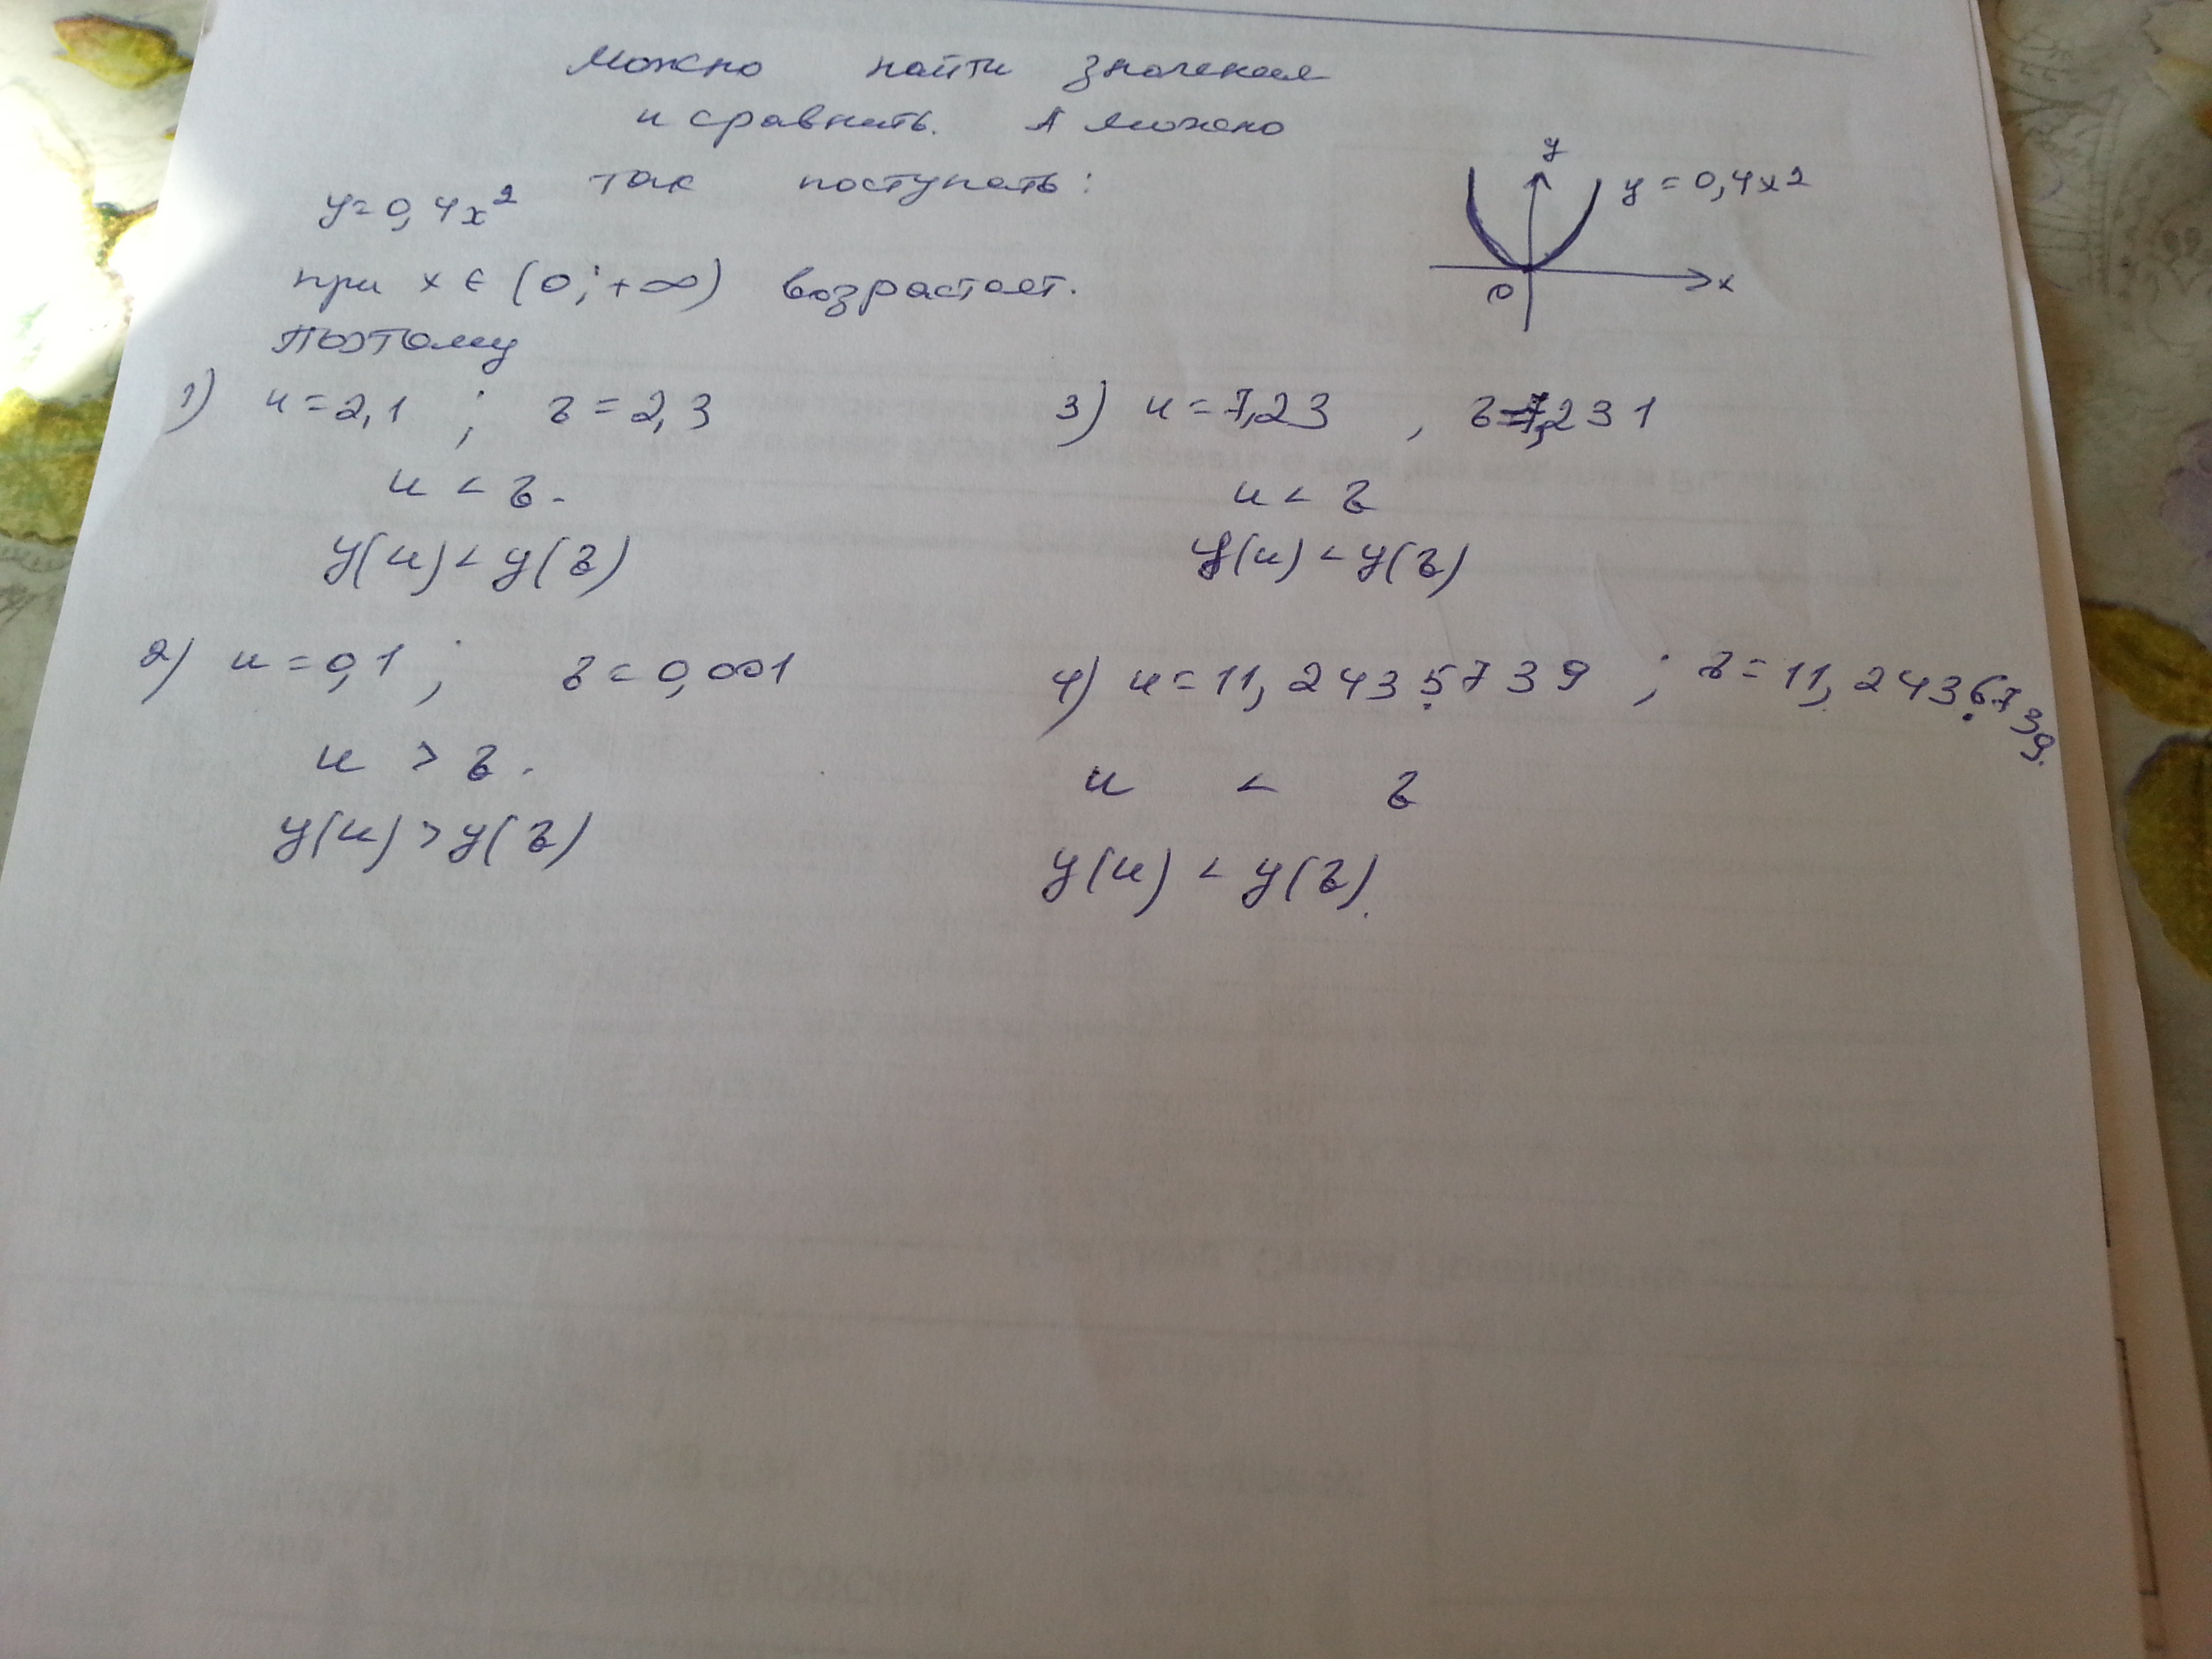 Можно найти значения
и сравнить. А можно
так поступать:
y = 0,4x²
при x ∈ (0; +∞) возрастает.
Поэтому
y
y = 0,4x2
x
0
1) u = 2,1 ; v = 2,3
u < v.
y(u) < y(v)
2) u = 0,1 ; v = 0,001
u > v.
y(u) > y(v)
3) u = 7,23 , v = 7,231
u < v
y(u) < y(v)
4) u = 11,2435739 ; v = 11,2436739.
u < v
y(u) < y(v).